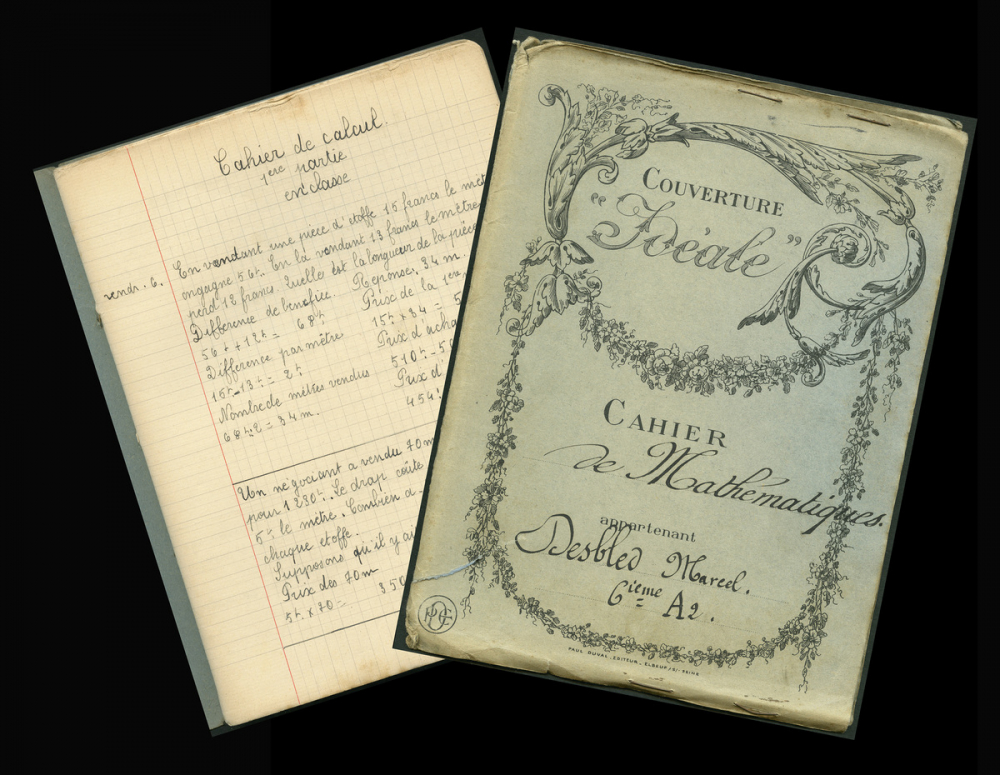 Cahier de calcul.
1ère partie
en classe
vendr. 6.
En vendant une pièce d'étoffe 15 francs le mèt
on gagne 56f. En la vendant 13 francs le mètre
perd 12 francs. Quelle est la longueur de la pièce
Différence de bénéfice. Réponse, 34 m.
56f + 12f = 68f
Différence par mètre
15f - 13f = 2f
Nombre de mètres vendus
68f : 2 = 34 m.
Prix de la 1ère
15f × 34 = 5
Prix d'acha
510f - 5
Prix d
454f
Un négociant a vendu 70 m
pour 1230f. Le drap coûte
5f le mètre. Combien a
chaque étoffe.
Supposons qu'il y ai
Prix des 70m
5f × 70 = 350
COUVERTURE
"Idéale"
CAHIER
de Mathématiques.
appartenant
Desbled Marcel.
6ième A2.
PAUL DUVAL - EDITEUR - ELBEUF /S/- SEINE